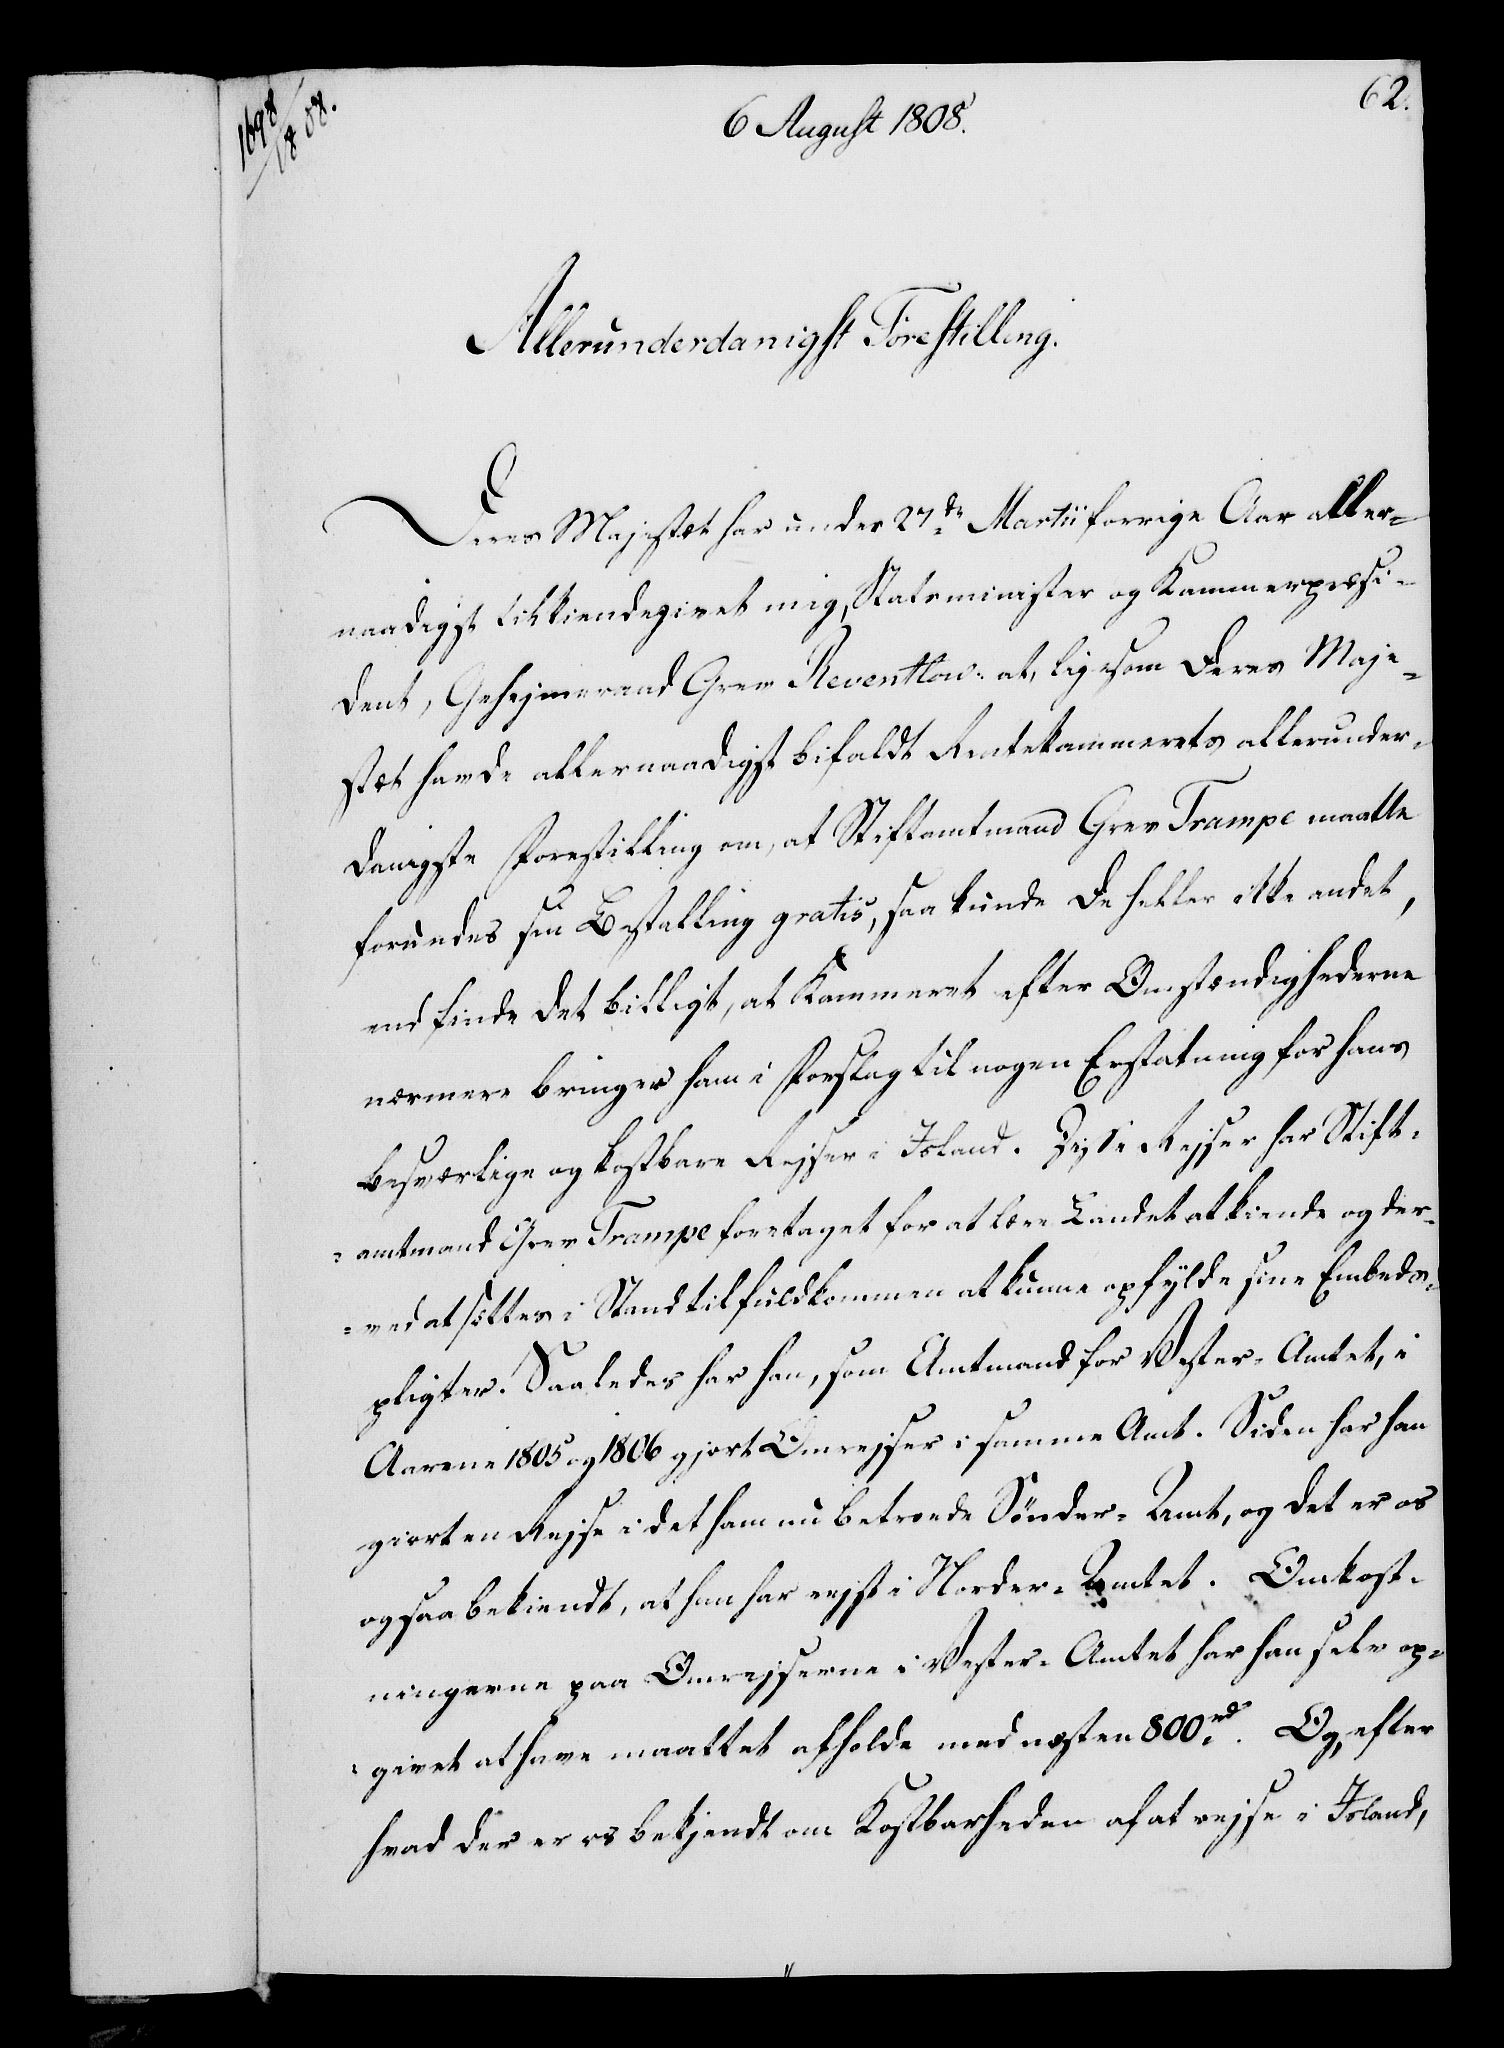 1698/1808.
6 August 1808.
62.
Allerunderdanigst Forestilling.
Deres Majestæt har under 27de Martii forrige Aar aller-
naadigst tilkiendegivet mig, Statsminister og Kammerpræsi-
dent, Gehejmeraad Grev Reventlow: at, ligesom Deres Maje-
stæt havde allernaadigst bifaldt Rentekammerets allerunder-
danigste Forestilling om, at Stiftamtmand Grev Trampe maatte
forundes sin Bestalling gratis, saa kunde De heller ikke andet,
end finde det billigt, at Kammeret efter Omstændighederne
nærmere bringer ham i Forslag til nogen Erstatning for hans
besværlige og kostbare Rejser i Island. Disse Rejser har Stift-
amtmand Grev Trampe foretaget for at lære Landet at kiende og der-
ved at sættes i Stand til fuldkommen at kunne opfylde sine Embeds-
pligter. Saaledes har han, som Amtmand for Vester-Amtet, i
Aarene 1805 og 1806 gjort Omrejser i samme Amt. Siden har han
giort en Rejse i det ham nu betroede Sønder-Amt, og det er os
ogsaa bekiendt, at han har rejst i Norder-Amtet. Omkost-
ningerne paa Omrejserne i Vester-Amtet har han selv op-
givet at have maattet afholde med næsten 800 rd. Og, efter
hvad der er os bekjendt om Kostbarheden af at rejse i Island,